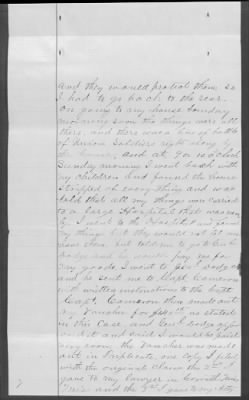 and they would protect them so
I had to go back to the rear.
On going to my house Sunday
morning soon the things were all
there, and there was a line of battle
of Union Soldiers right along by
the house, and at 2 o'clock
Sunday evening I went back with
my children and found the house
stripped of every thing and was
told that all my things was carried
to a large Hospital that was near
by. I went to the Hospital and found
my things but they would not let me
have them but told me to go to Genl
Dodge and he would pay me for
my goods I went to Genl Dodge
and he sent me to Capt Cameron
with written instructions to the Capt
Capt. Cameron then made out
my Voucher for $ as stated
in this Case, and Genl Dodge
it and said I would be paid
any soon, the Voucher was made
out in Triplicate, one Copy I filed
with the original Claim the 2nd I
gave to my lawyer in Corinth
Miss and the 3rd I gave to my Atty